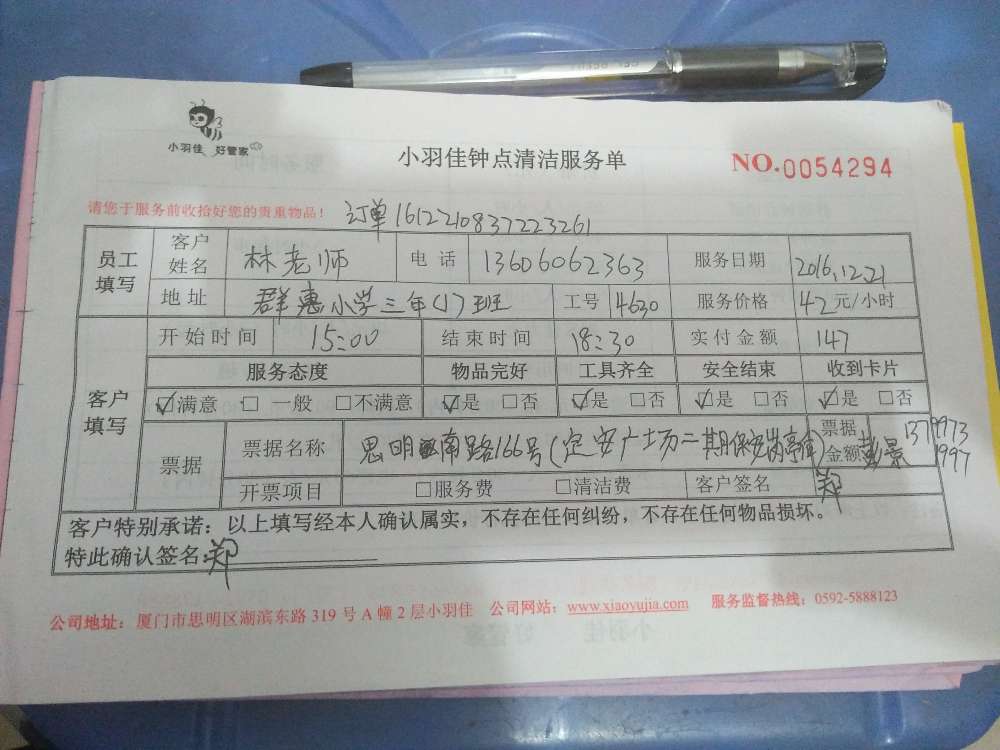 小羽佳 好管家
小羽佳钟点清洁服务单
NO.0054294
请您于服务前收拾好您的贵重物品！ 订单1612210837223261
员工填写 客户姓名 林老师 电话 13606062363 服务日期 2016.12.21
地址 群惠小学三年(1)班 工号 4630 服务价格 42元/小时
客户填写 开始时间 15:00 结束时间 18:30 实付金额 147
服务态度 物品完好 工具齐全 安全结束 收到卡片
☑满意 □一般 □不满意 ☑是 □否 ☑是 □否 ☑是 □否 ☑是 □否
票据 票据名称 思明南路166号(定安广场二期保安岗亭 票据金额 1379973
1997
开票项目 □服务费 □清洁费 客户签名 郑
客户特别承诺：以上填写经本人确认属实，不存在任何纠纷，不存在任何物品损坏。
特此确认签名：郑
公司地址：厦门市思明区湖滨东路319号A幢2层小羽佳 公司网站：www.xiaoyujia.com 服务监督热线：0592-5888123